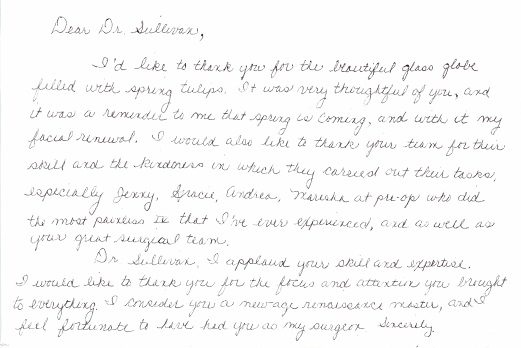 Dear Dr. Sullivan,
I'd like to thank you for the beautiful glass globe
filled with spring tulips. It was very thoughtful of you, and
it was a reminder to me that spring is coming, and with it my
facial renewal. I would also like to thank your team for their
skill and the kindness in which they carried out their tasks,
especially Jenny, Gracie, Andrea, Marisha at pre-op who did
the most painless IV that I've ever experienced, and as well as
your great surgical team.
Dr. Sullivan, I applaud your skill and expertise.
I would like to thank you for the focus and attention you brought
to everything. I consider you a new age renaissance master, and I
feel fortunate to have had you as my surgeon Sincerely,